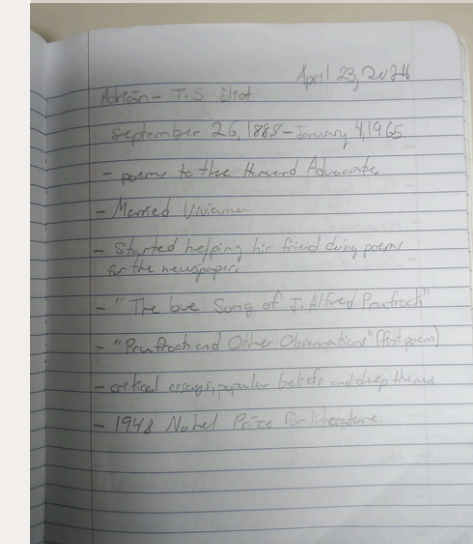 April 23, 2024
Adrian - T.S Eliot
September 26, 1888 - January 4, 1965
- poems to the Harvard Advocate
- Married
- Started helping his friend doing poems
for the newspaper,
- "The love Song of J. Alfred Prufrock"
- "Prufrock and Other Observations" (first poem)
- critical essays, popular beliefs and deep themes
- 1948 Nobel Prize for literature